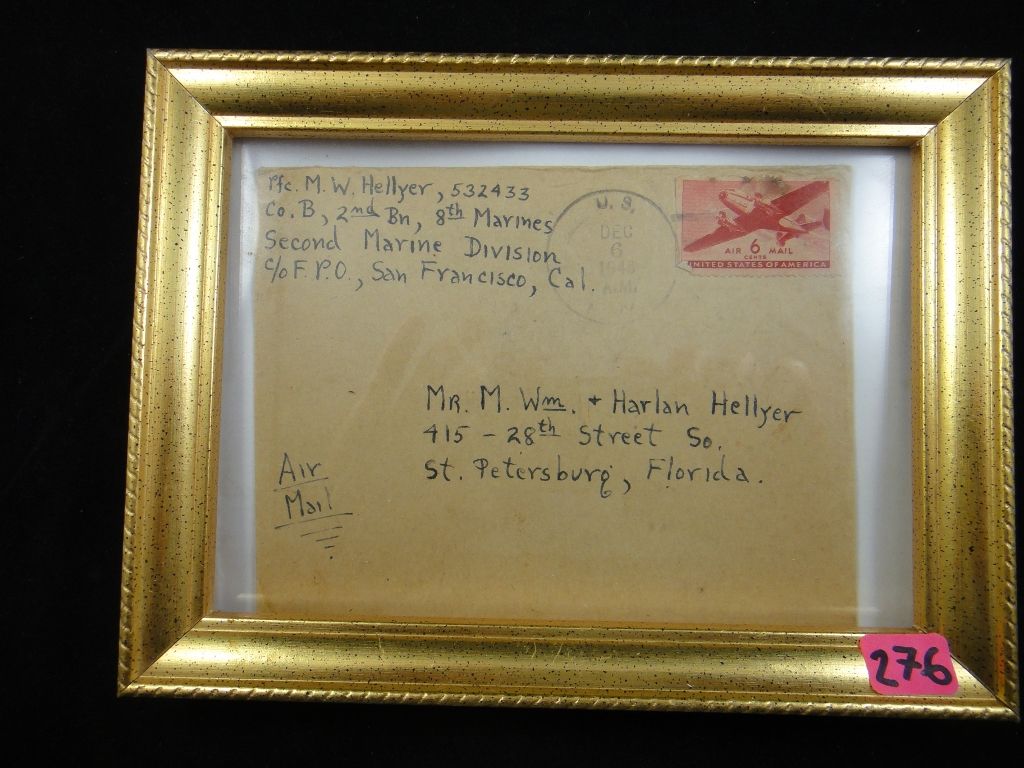 Pfc. M. W. Hellyer, 532433
Co. B, 2nd Bn, 8th Marines
Second Marine Division
c/o F.P.O., San Francisco, Cal.
U. S.
DEC
6
A.M.
AIR 6 MAIL
CENTS
UNITED STATES OF AMERICA
MR. M. Wm. + Harlan Hellyer
415 - 28th Street So.
St. Petersburg, Florida.
Air
Mail
276